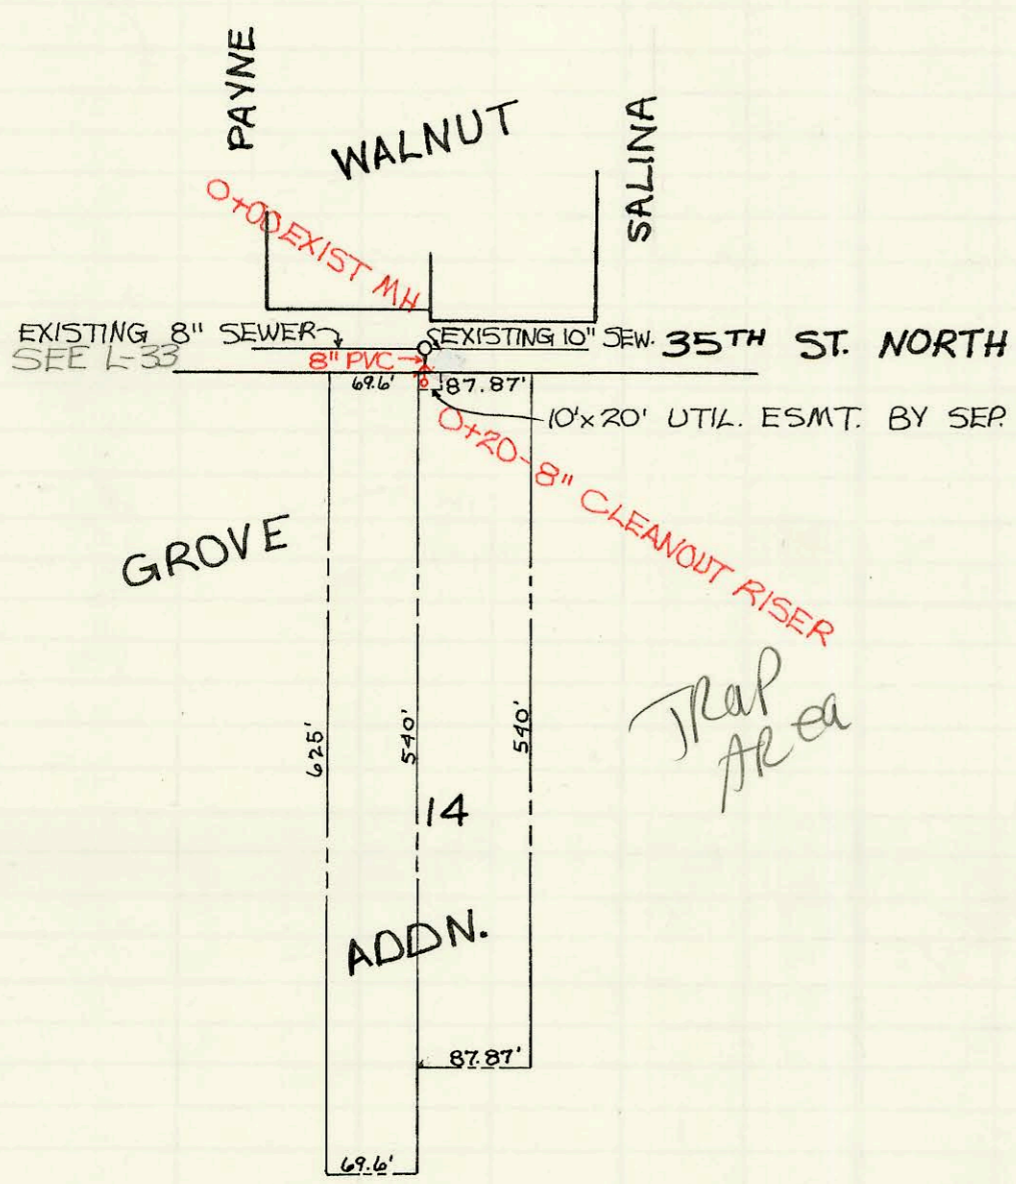 PAYNE
WALNUT
SALINA
0+00 EXIST MH
EXISTING 8" SEWER
EXISTING 10" SEW.
35TH ST. NORTH
SEE L-33
8" PVC
69.6'
87.87'
10'x20' UTIL. ESMT. BY SEP.
0+20-8" CLEANOUT RISER
GROVE
TRaP
AREa
625'
540'
540'
14
ADDN.
87.87'
69.6'